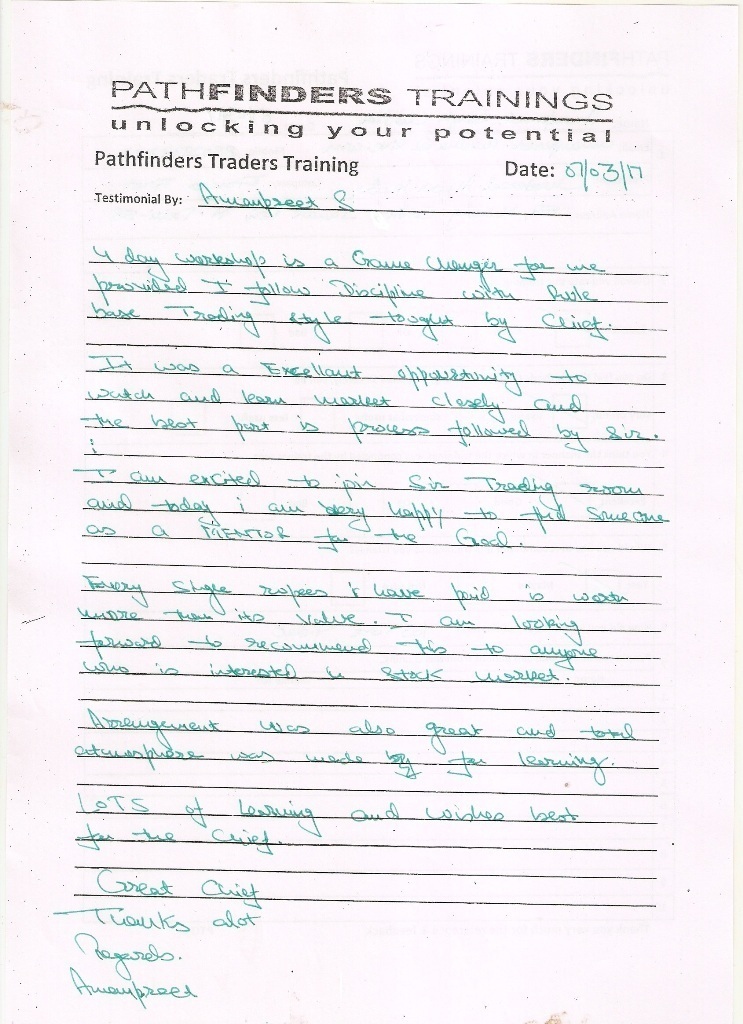 PATHFINDERS TRAININGS
unlocking your potential
Pathfinders Traders Training Date: 07/03/17
Testimonial By: Amanpreet S
4 day workshop is a Game Changer for me
provided I follow Discipline with Rule
base Trading style tought by Chief.
It was a Excellant opportunity to
watch and learn market closely and
the best part is process followed by Sir.
I am excited to join Sir Trading room
and today i am very happy to find someone
as a MENTOR for the Good.
Every single rupees i have paid is worth
more than its value. I am looking
forward to recommend this to anyone
who is interested in stock market.
Arrangement was also great and total
atmosphere was made for learning.
LOTS of learning and wishes best
for the Chief.
Great Chief
Thanks alot
Regards.
Amanpreet